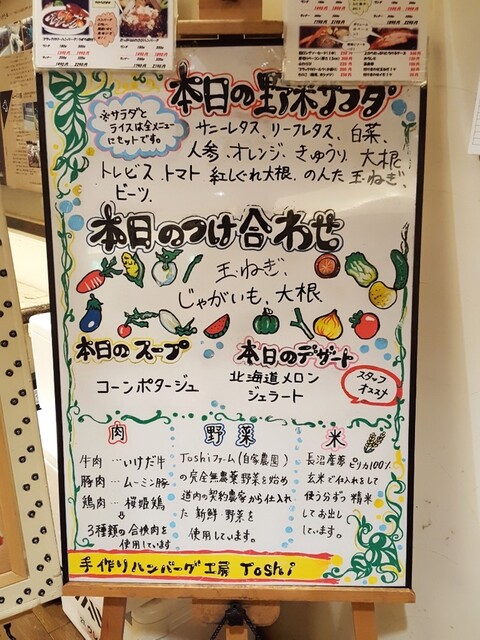 本日の野菜サラダ
※サラダと
ライスは全メニュー
にセットです。
サニーレタス、リーフレタス、白菜、
人参、オレンジ、きゅうり、大根
トレビス、トマト 紅しぐれ大根、の人た 玉ねぎ、
ビーツ、
本日のつけ合わせ
玉ねぎ、
じゃがいも、大根
本日のスープ
コーンポタージュ
本日のデザート
北海道メロン
ジェラート
スタッフ
オススメ
肉
牛肉…いけだ牛
豚肉…ムーミン豚
鶏肉…桜姫鶏
3種類の合挽肉を
使用しています
野菜
Toshiファーム(自家農園)
の完全無農薬野菜を始め
道内の契約農家から仕入れ
た新鮮野菜を
使用しています。
米
長沼産夢ピリカ100%
玄米で仕入れをして
使う分ずつ精米
してお出し
しています。
手作りハンバーグ工房 Toshi